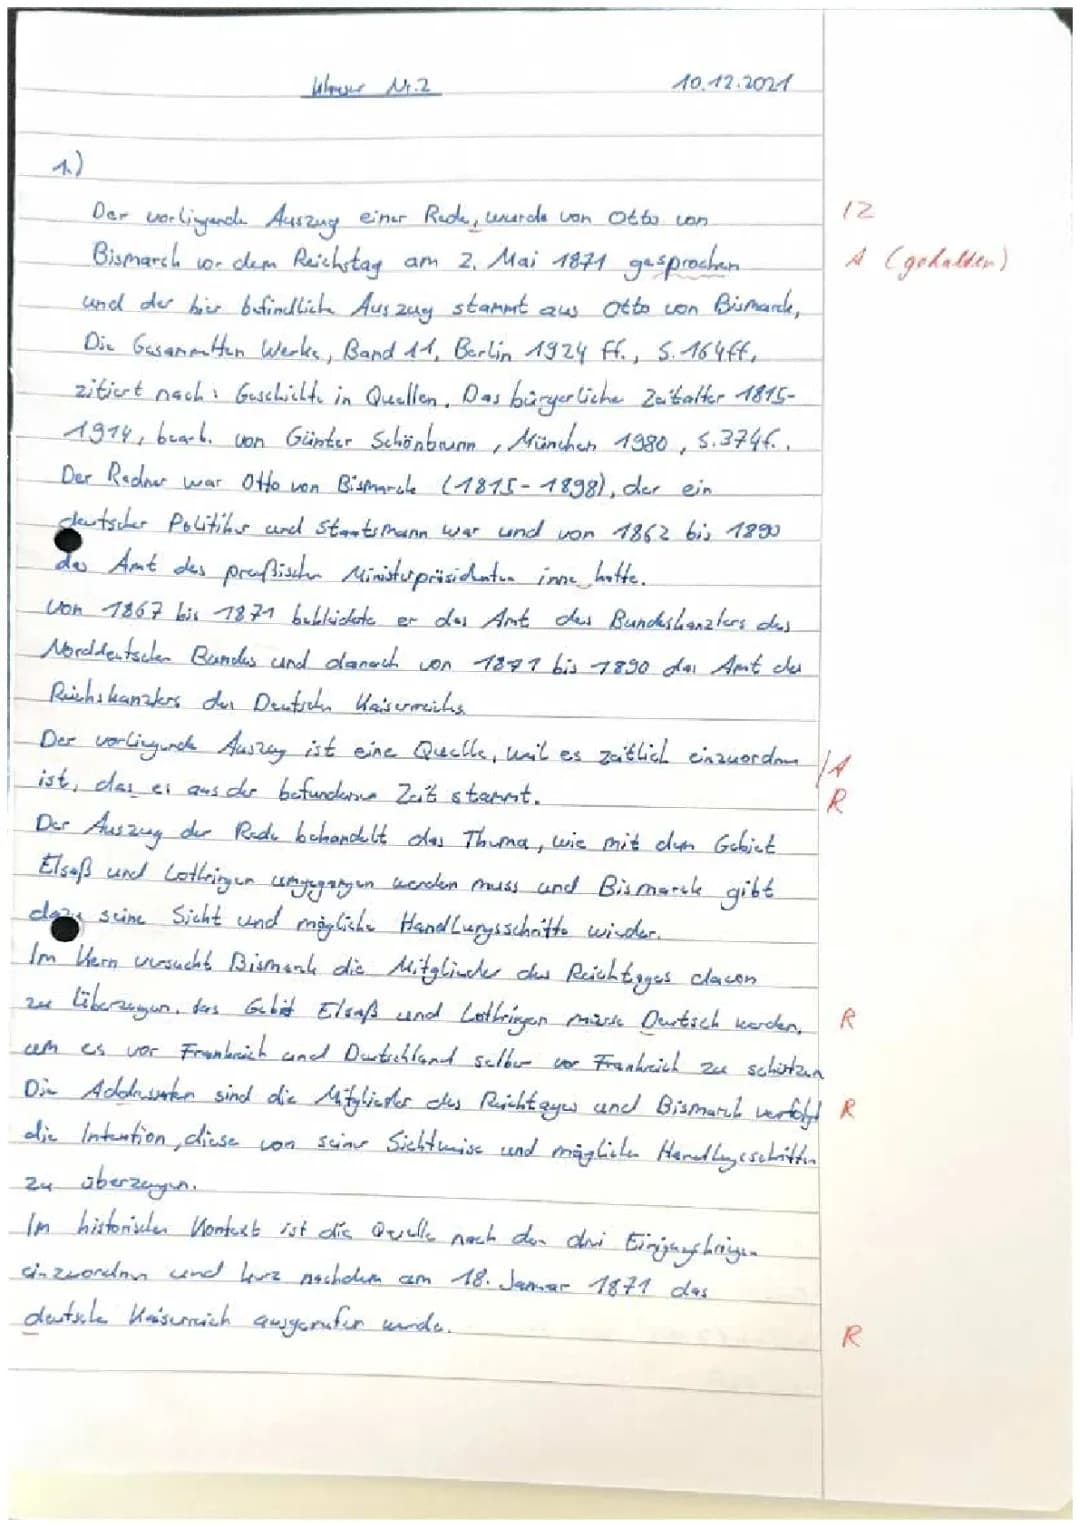 Klausur Nr.2 10.12.2021
1.)
Der vorliegende Auszug einer Rede, wurde von Otto von 12
Bismarck vor dem Reichstag am 2. Mai 1871 gesprochen A (gehalten)
und der hier befindliche Auszug stammt aus Otto von Bismarck,
Die Gesammelten Werke, Band 11, Berlin 1924 ff., S. 164ff,
zitiert nach: Geschichte in Quellen. Das bürgerliche Zeitalter 1815-
1914, bearb. von Günter Schönbrunn, München 1980, S.374f..
Der Redner war Otto von Bismarck (1815-1898), der ein
deutscher Politiker und Staatsmann war und von 1862 bis 1890
das Amt des preußischen Ministerpräsidenten inne hatte.
Von 1867 bis 1871 bekleidete er das Amt des Bundeskanzlers des
Norddeutschen Bundes und danach von 1871 bis 1890 das Amt des
Reichskanzlers des Deutschen Kaiserreichs.
Der vorliegende Auszug ist eine Quelle, weil es zeitlich einzuordnen /A
ist, das er aus der befundenen Zeit stammt. R
Der Auszug der Rede behandelt das Thema, wie mit dem Gebiet
Elsaß und Lothringen umgegangen werden muss und Bismarck gibt
dazu seine Sicht und mögliche Handlungsschritte wieder.
Im Kern versucht Bismarck die Mitglieder des Reichtages davon
zu überzeugen, das Gebiet Elsaß und Lothringen müsse Deutsch werden, R
um es vor Frankreich und Deutschland selber vor Frankreich zu schützen
Die Addressaten sind die Mitglieder des Reichtages und Bismarck verfolgt R
die Intention, diese von seiner Sichtweise und möglichen Handlungsschritten
zu überzeugen.
Im historischen Kontext ist die Quelle nach den drei Einigungskriegen
einzuordnen und kurz nachdem am 18. Januar 1871 das
deutsche Kaiserreich ausgerufen wurde. R